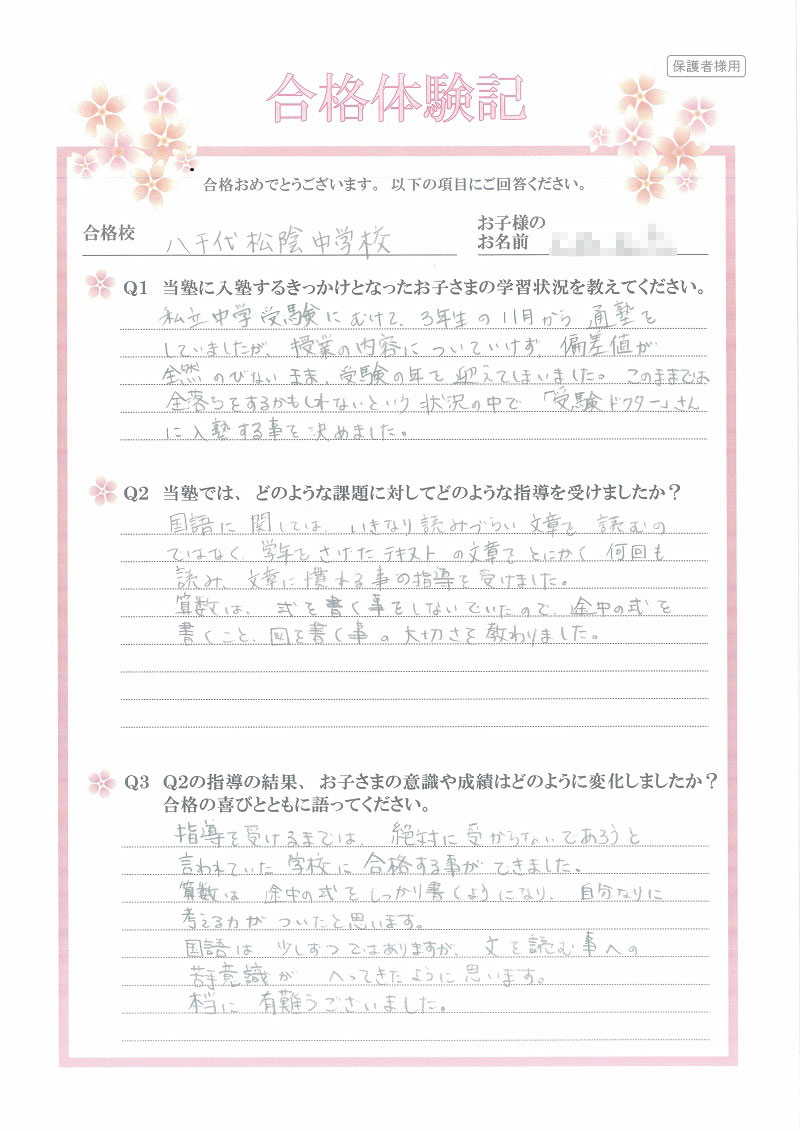 保護者様用
合格体験記
合格おめでとうございます。以下の項目にご回答ください。
合格校 八千代松陰中学校
お子様の
お名前
Q1 当塾に入塾するきっかけとなったお子さまの学習状況を教えてください。
私立中学受験にむけて、3年生の11月から通塾を
していましたが、授業の内容についていけず、偏差値が
全然のびないまま、受験の年を迎えてしまいました。このままでは
全落ちをするかもしれないという状況の中で「受験ドクター」さん
に入塾する事を決めました。
Q2 当塾では、どのような課題に対してどのような指導を受けましたか？
国語に関しては、いきなり読みづらい文章を読むの
ではなく、学年をさげたテキストの文章をとにかく何回も
読み、文章に慣れる事の指導を受けました。
算数は、式を書く事をしないでいたので、途中の式を
書くこと、図を書く事の大切さを教わりました。
Q3 Q2の指導の結果、お子さまの意識や成績はどのように変化しましたか？
合格の喜びとともに語ってください。
指導を受けるまでは、絶対に受からないであろうと
言われていた学校に合格する事ができました。
算数は途中の式をしっかり書くようになり、自分なりに
考える力がついたと思います。
国語は、少しずつではありますが、文を読む事への
苦手意識がへってきたように思います。
本当に有難うございました。